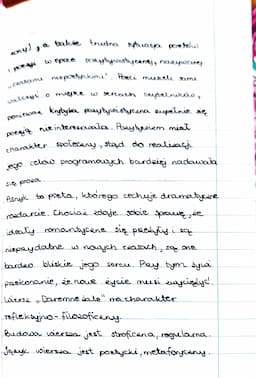 a także trudna sytuacja poetów
i poezji w epoce pozytywistycznej, nazywanej
„czasami niepoetyckimi". Poeci musieli sami
walczyć o miejsce w sercach czytelników,
ponieważ krytyka pozytywistyczna zupełnie się
poezją nie interesowała. Pozytywizm miał
charakter społeczny, stąd do realizacji
jego celów programowych bardziej nadawała
się proza.
Asnyk to poeta, którego cechuje dramatyczne
rozdarcie. Chociaż zdaje sobie sprawę, że
ideały romantyczne się przeżyły i są
nieprzydatne w nowych czasach, są one
bardzo bliskie jego sercu. Przy tym żywi
przekonanie, że nowe życie musi zwyciężyć.
Wiersz „Daremne żale" ma charakter
refleksyjno-filozoficzny.
Budowa wiersza jest stroficzna, regularna.
Język wiersza jest poetycki, metaforyczny.